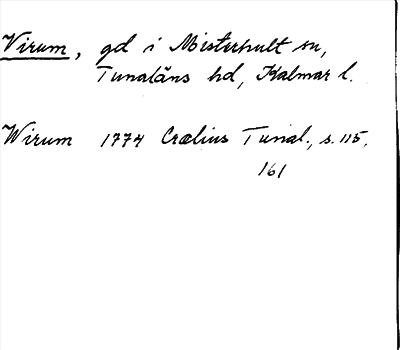 Virum, gd i Misterhult sn,
Tunaläns hd, Kalmar l.
Wirum 1774 Crælius Tunal., s. 115,
161